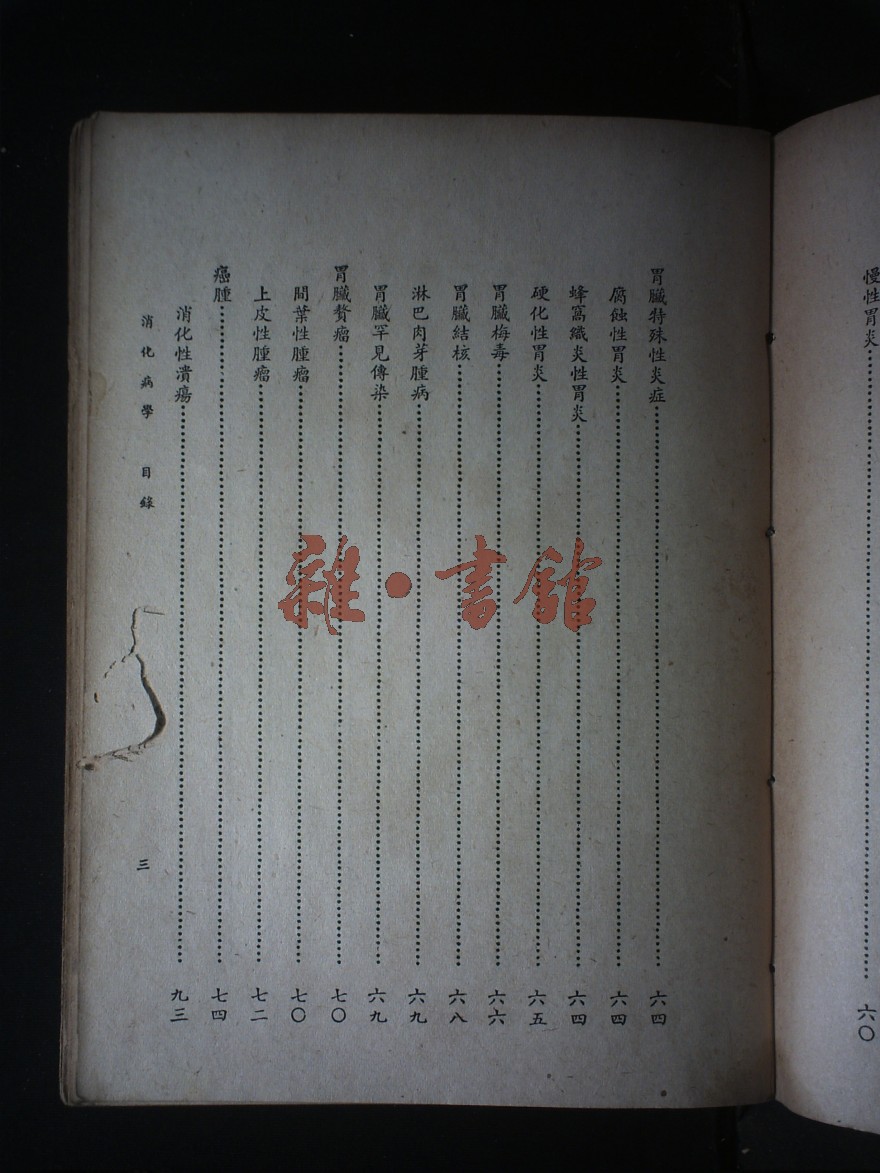 慢性胃炎……六〇
胃臟特殊性炎症……六四
腐蝕性胃炎……六四
蜂窩織炎性胃炎……六四
硬化性胃炎……六五
胃臟梅毒……六六
胃臟結核……六八
淋巴肉芽腫病……六九
胃臟罕見傳染……六九
胃臟贅瘤……七〇
間葉性腫瘤……七〇
上皮性腫瘤……七二
癌腫……七四
消化性潰瘍……九三
消化病學 目錄 三
雜·書館